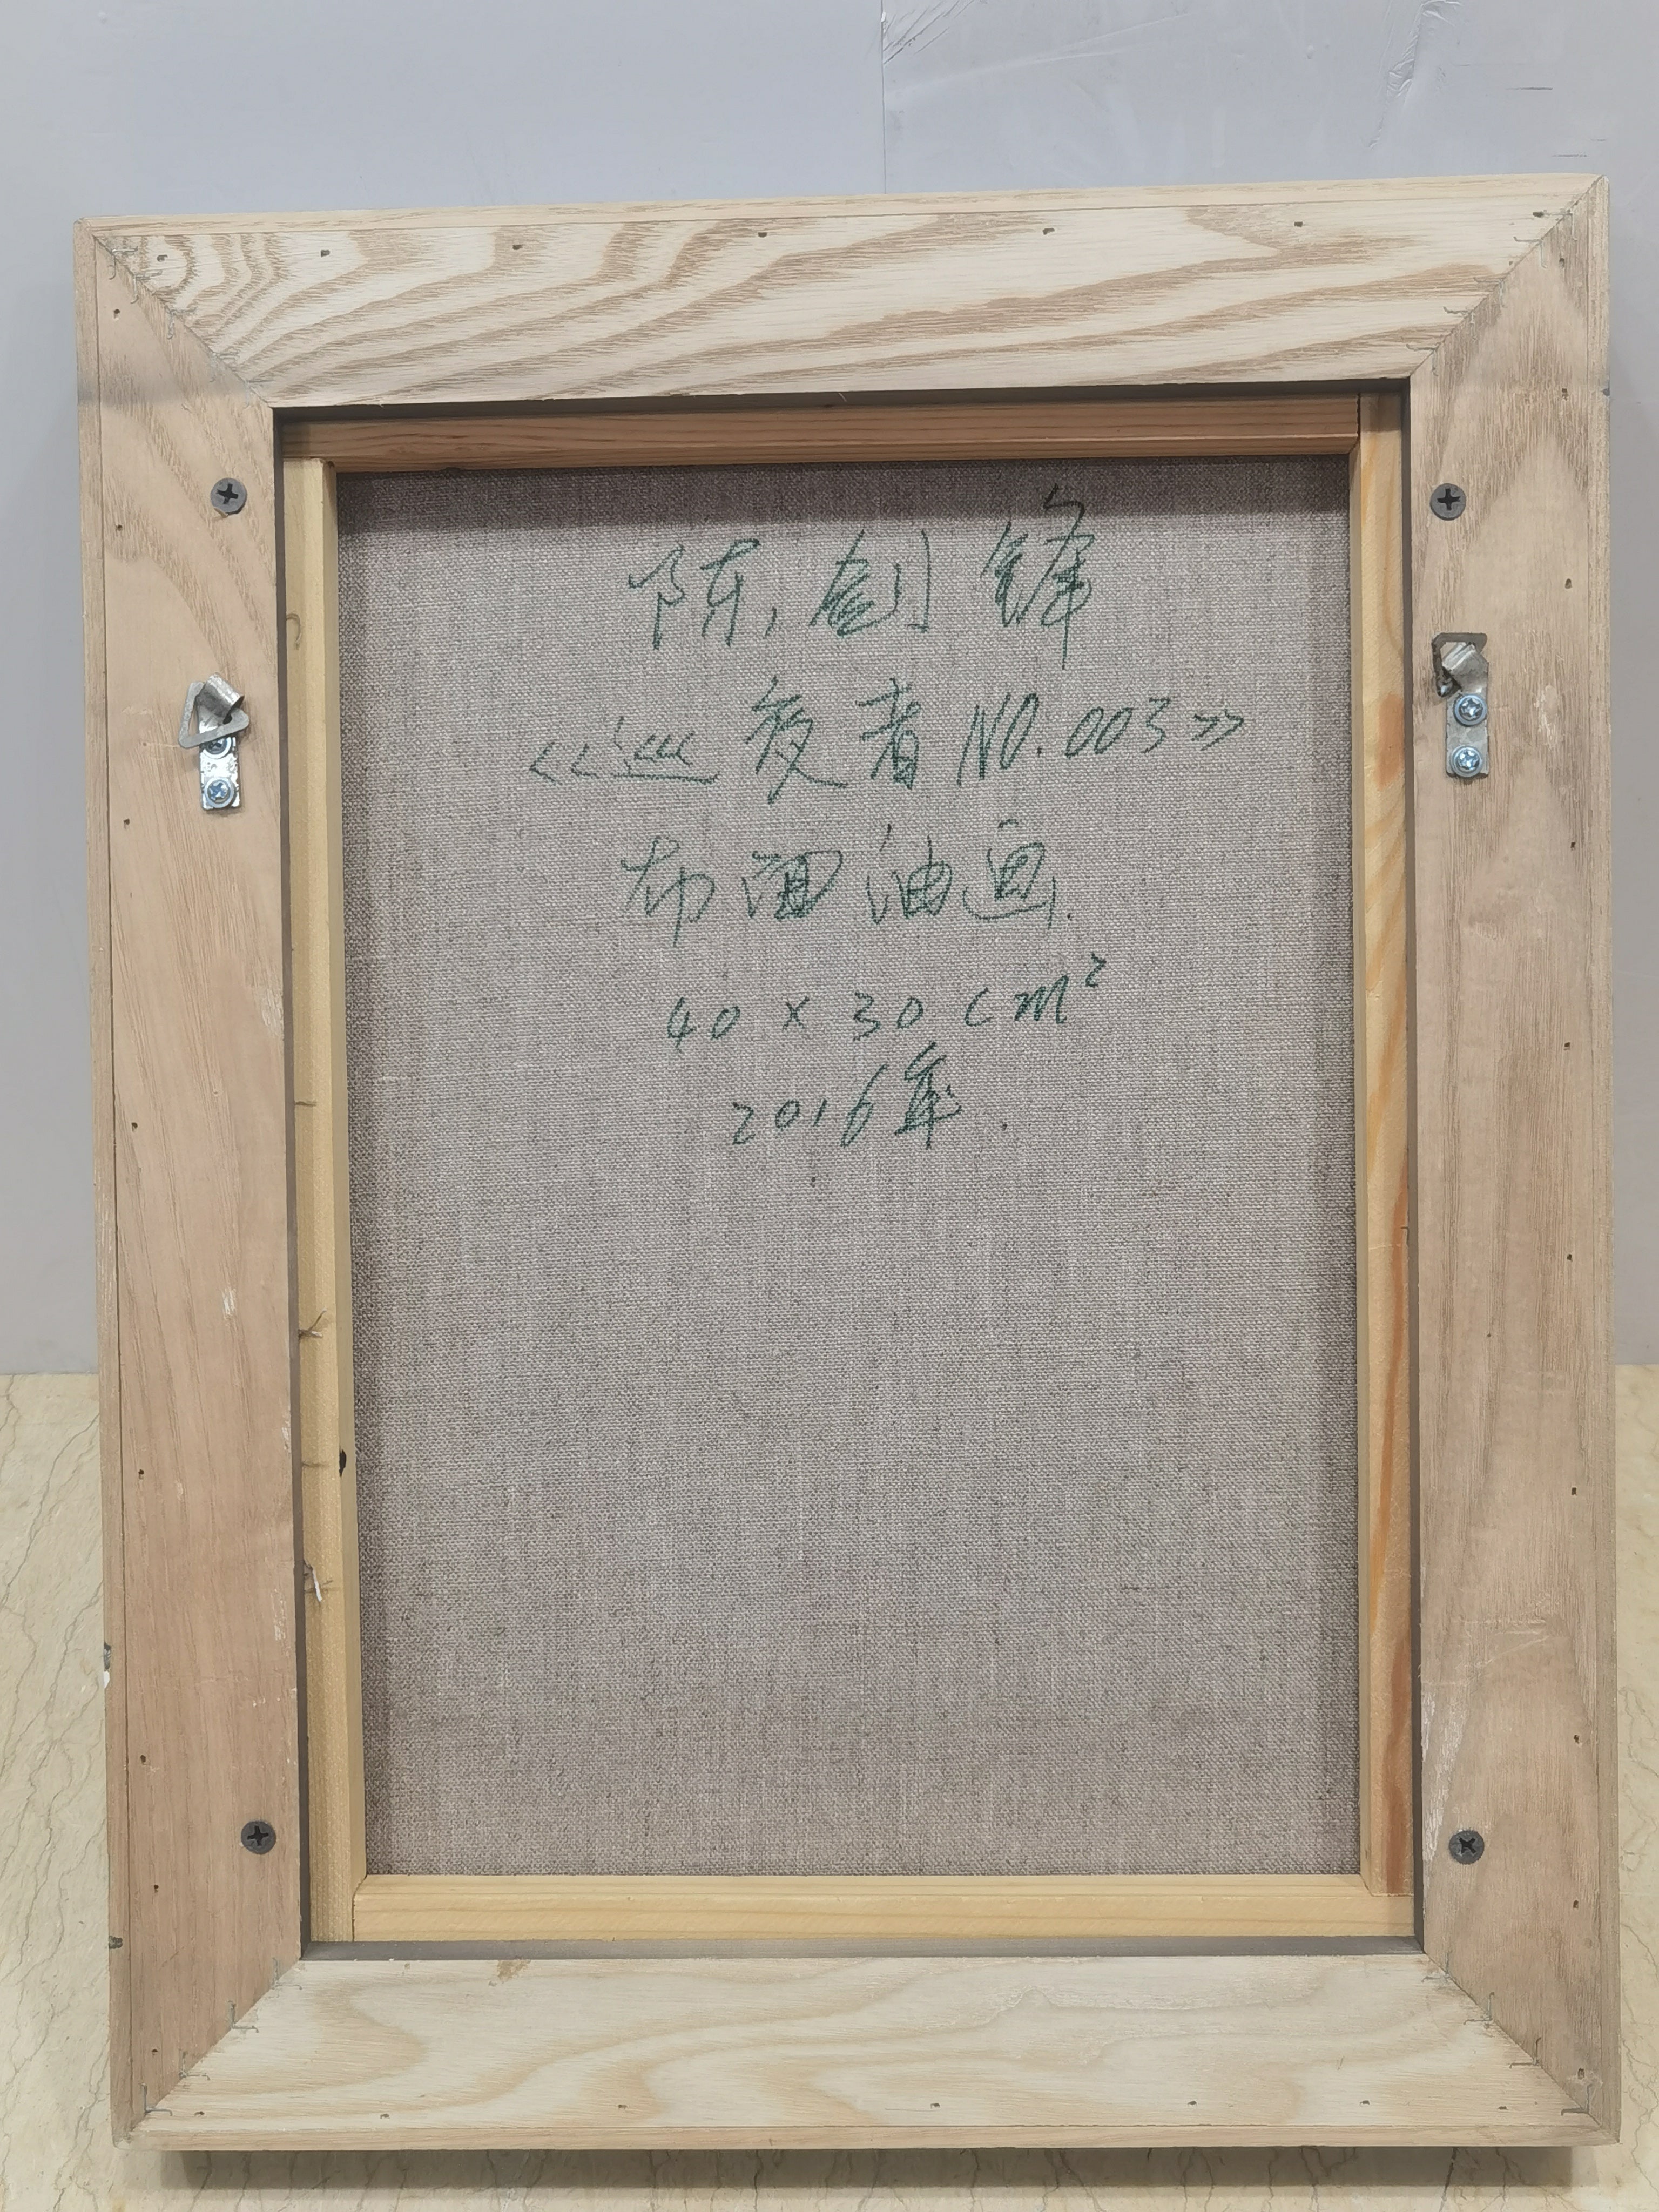 陈剑锋
《巡夜者 NO.003》
布面油画.
40 x 30 cm²
2016年.